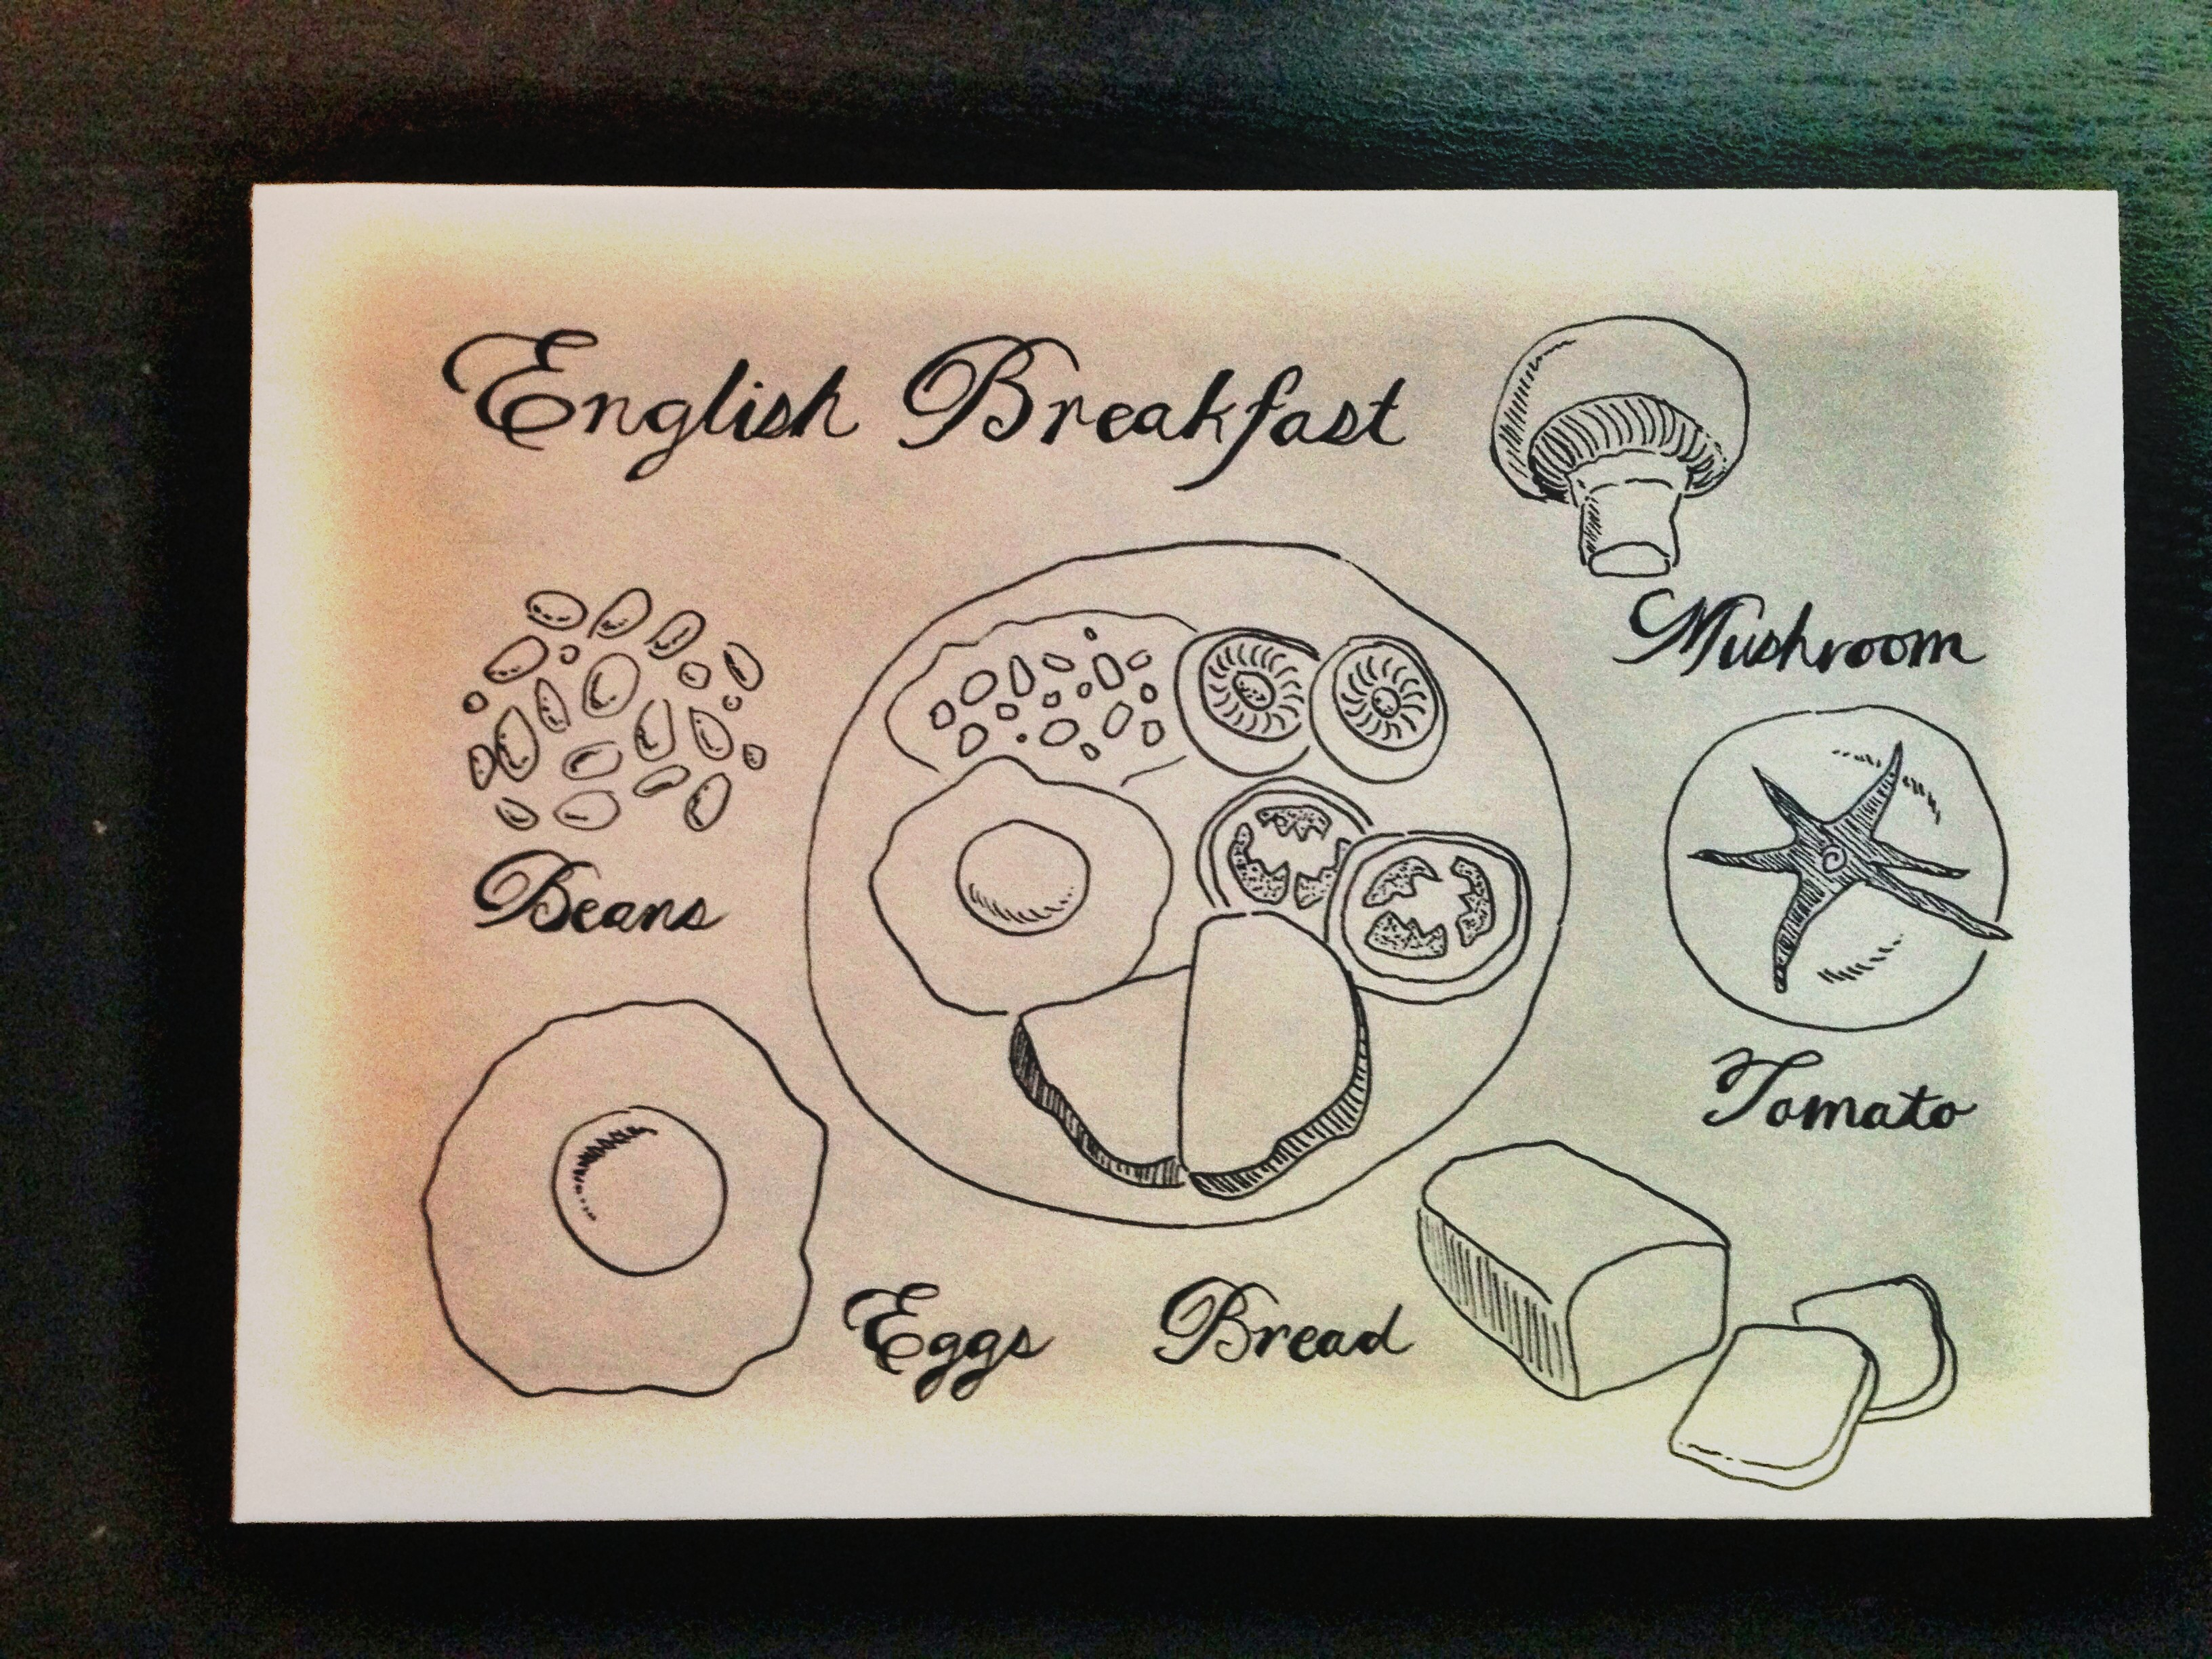 English Breakfast
Mushroom
Beans
Tomato
Eggs
Bread